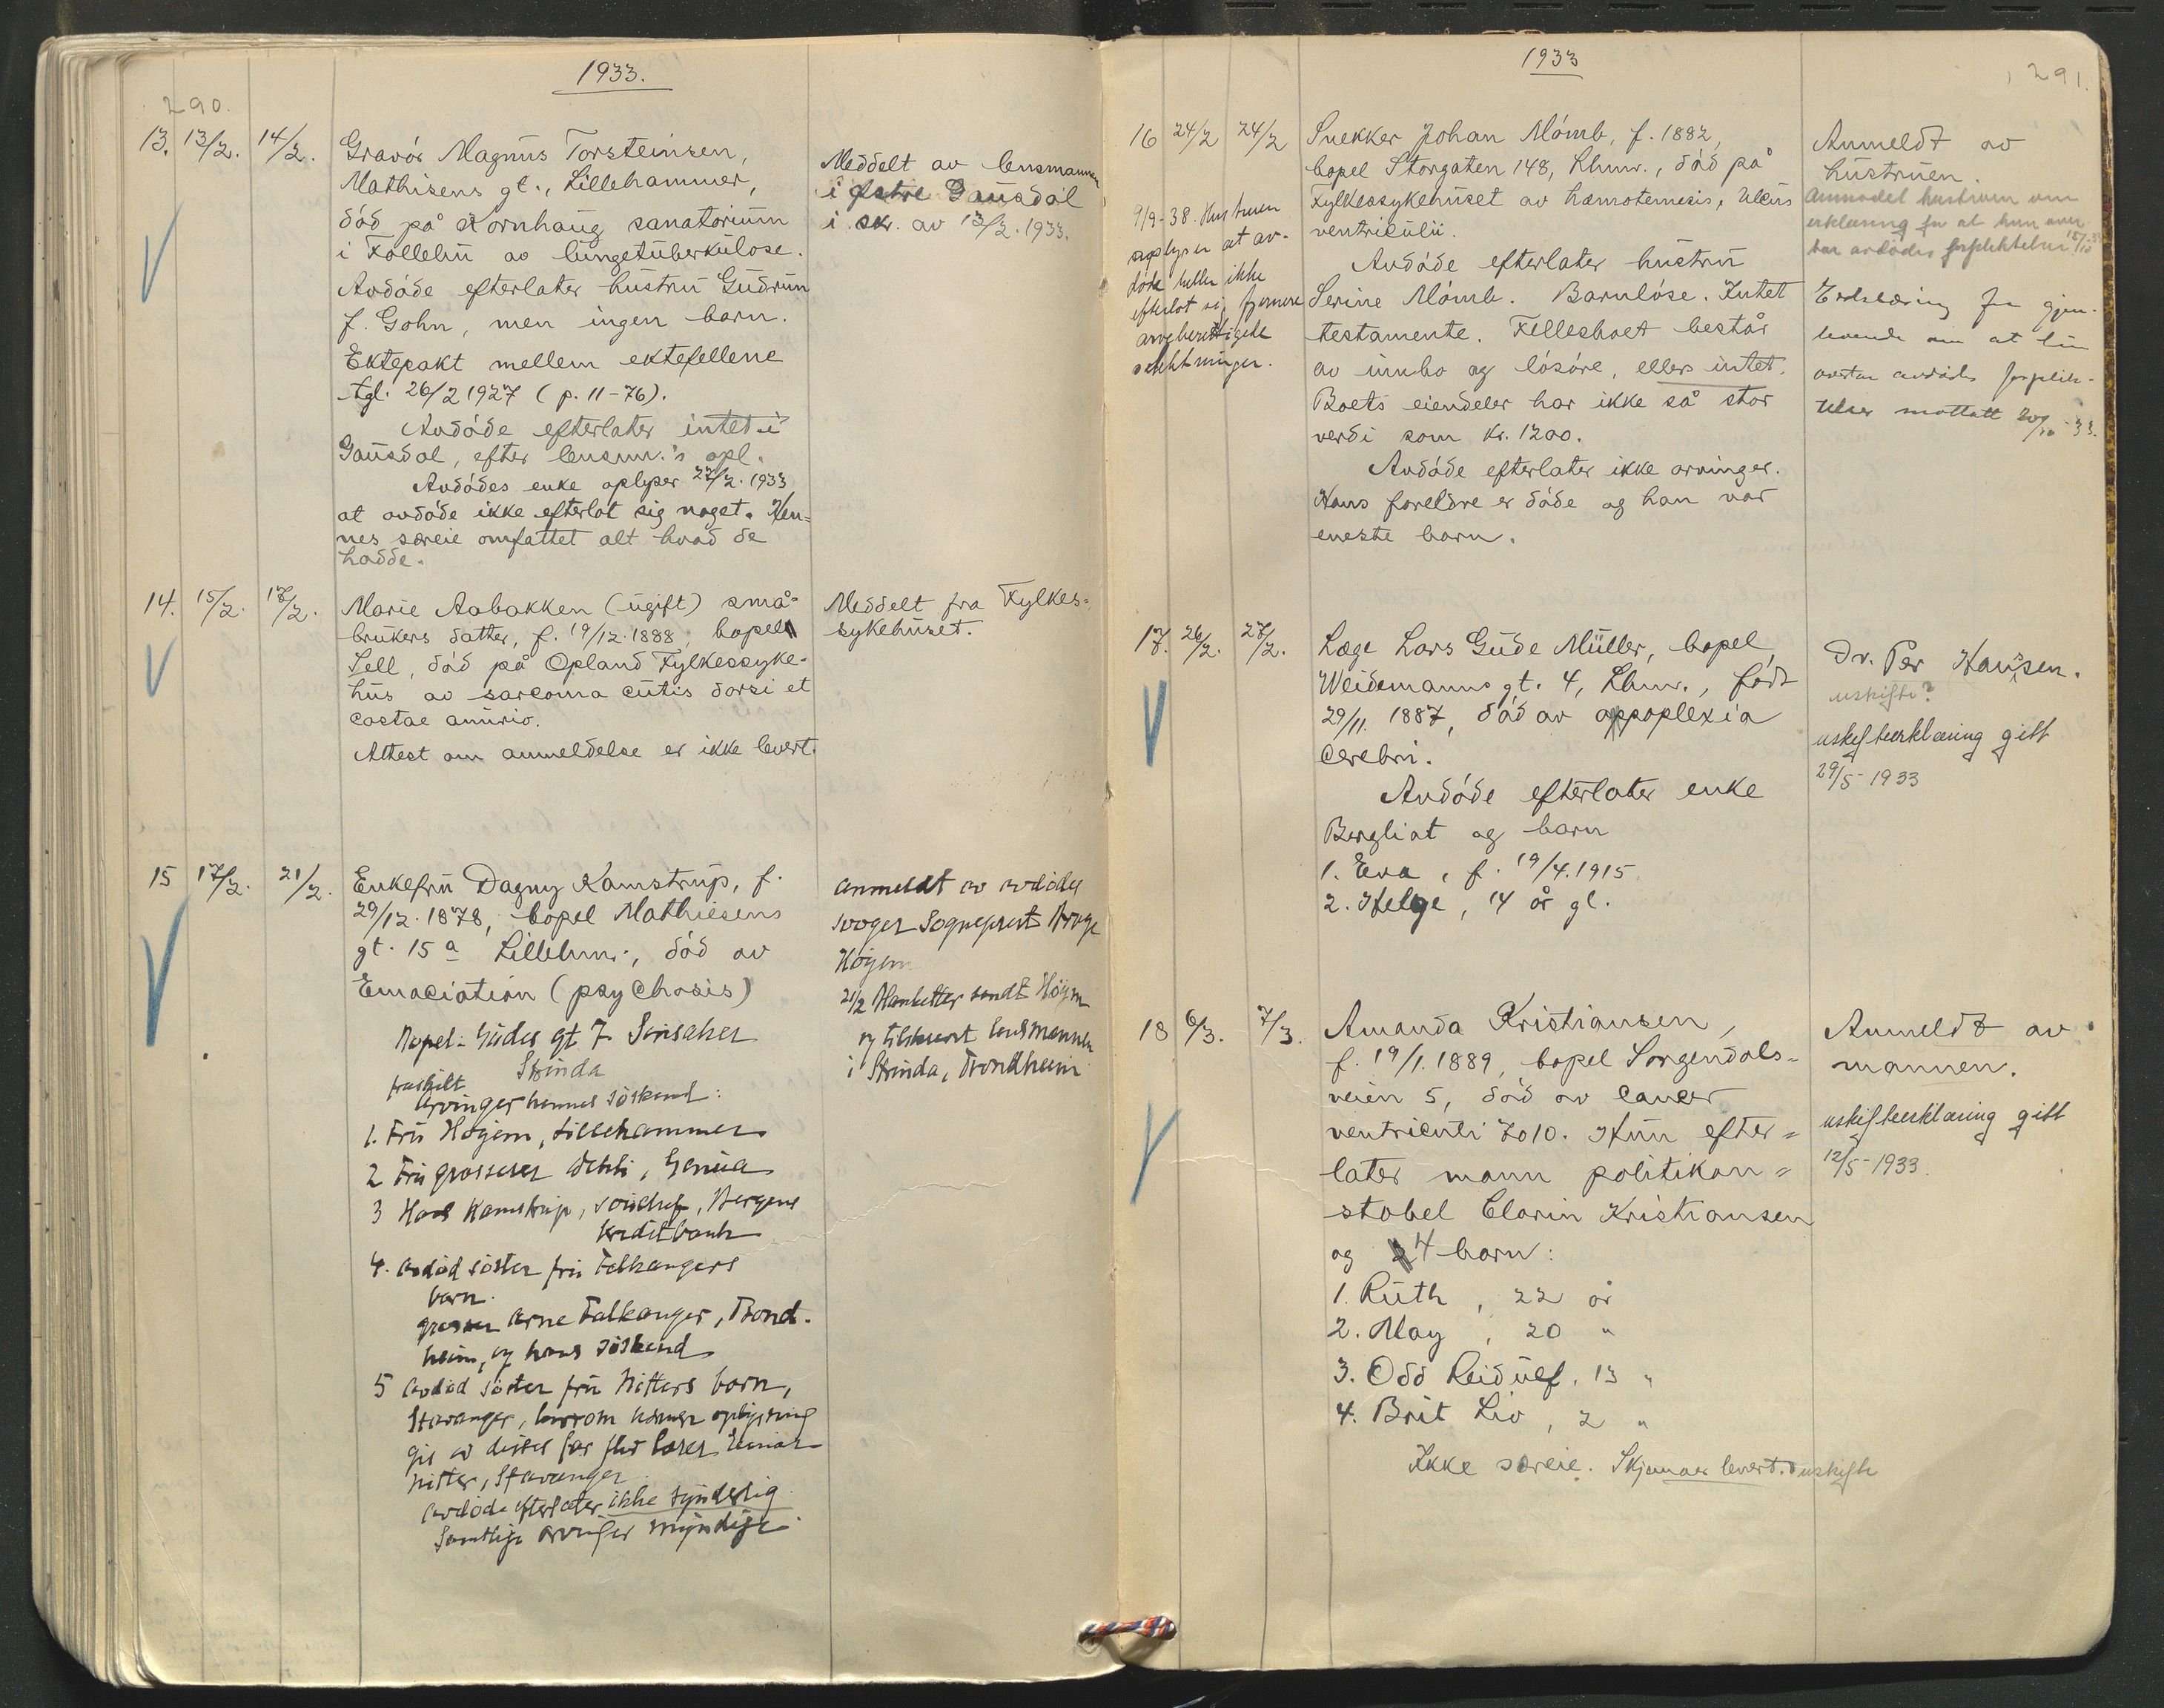 1933.
290.
13. 13/2. 14/2.
Gravør Magnus Torsteinsen,
Mathisens gt., Lillehammer,
død på Kornhaug sanatorium
i Follebu av lungetuberkulose.
Avdøde efterlater hustru Gudrun
f. Gohn, men ingen barn.
Ektepakt mellem ektefellene
tgl. 26/2 1927 (p. 11-76).
Avdøde efterlater intet i
Gausdal, efter lensm.'s opl.
Avdødes enke oplyser 22/2. 1933
at avdøde ikke efterlot sig noget. Hen=
nes særeie omfattet alt hvad de
hadde.
Meddelt av lensmannen
i Østre Gausdal
i skr. av 13/2. 1933.
14. 15/2. 18/2.
Marie Aabakken (ugift) små-
brukers datter, f. 19/12.1888, bopel
Sell, død på Opland Fylkessyke-
hus av sarcoma cutis dorsi et
costae
Attest om anmeldelse er ikke levert.
Meddelt fra Fylkes-
sykehuset.
15 17/2. 21/2.
Enkefru Dagny Kamstrup, f.
29/12.1878, bopel Mathiesens
gt. 15a Lillehmr., død av
Emaciation (psychosis)
Bopel: Gudes gt 7
Strinda
fraskilt
Arvinger hennes søskend:
1. Fru Høyem, Lillehammer
2 Fru grosserer Wehli, Genua
3 Hans Kamstrup, Bergens
Kreditbank
4. avdød søster fru Falkangers
barn.
grosser Arne Falkanger, Trond-
heim, og hans søskend
5 avdød søster fru Hitters barn,
Stavanger, hvorom nærmere oplysning
gis av disses far
Stavanger
avdøde efterlater ikke synderlig.
Samtlige arvinger myndige.
Anmeldt av avdødes
svoger Sogneprest
Høyem
21/2 Blanketter sendt Høyem
og tilskrevet lensmannen
i Strinda, Trondheim
1933
291.
16 24/2 24/2
Snekker Johan Mømb, f. 1882,
bopel Storgaten 148, Lhmr., død på
Fylkessykehuset av hæmotemesis, ulcus
ventriculii.
Avdøde efterlater hustru
Serine Mømb. Barnløse. Intet
testamente. Fellesboet består
av innbo og løsøre, ellers intet.
Boets eiendeler har ikke så stor
verdi som kr. 1200.
Avdøde efterlater ikke arvinger.
Hans foreldre er døde og han var
eneste barn.
9/9-38. Hustruen
oplyser at av-
døde heller ikke
efterlot sig fjernere
arveberettigede
slektninger.
Anmeldt av
hustruen.
Anmodet hustruen om
erklæring for at hun over
tar avdødes forpliktelser
Erklæring fra gjen-
levende om at hun
overtar avdødes forplik-
telser mottatt 20/10-33.
17. 26/2. 27/2.
Læge Lars Gude Müller, bopel
Weidemanns gt. 4, Lhmr., født
29/11. 1887, død av appoplexia
cerebri.
Avdøde efterlater enke
Bergliot og barn
1. Eva, f. 19/4.1915
2. Helge, 14 år gl.
Dr. Per Hanssen.
uskifte?
uskifteerklæring gitt
29/5-1933
18 6/3. 7/3.
Amanda Kristiansen,
f. 19/1.1889, bopel Sorgendals-
veien 5, død av cancer
ventriculi. Hun efter=
later mann politikon=
stabel Clarin Kristiansen
og 4 barn:
1. Ruth, 22 år
2. May, 20 "
3. Odd Reidulf, 13 "
4. Brit Liv, 2 "
Ikke særeie. Skjemaer levert. uskifte
Anmeldt av
mannen.
uskifteerklæring gitt
12/5-1933.